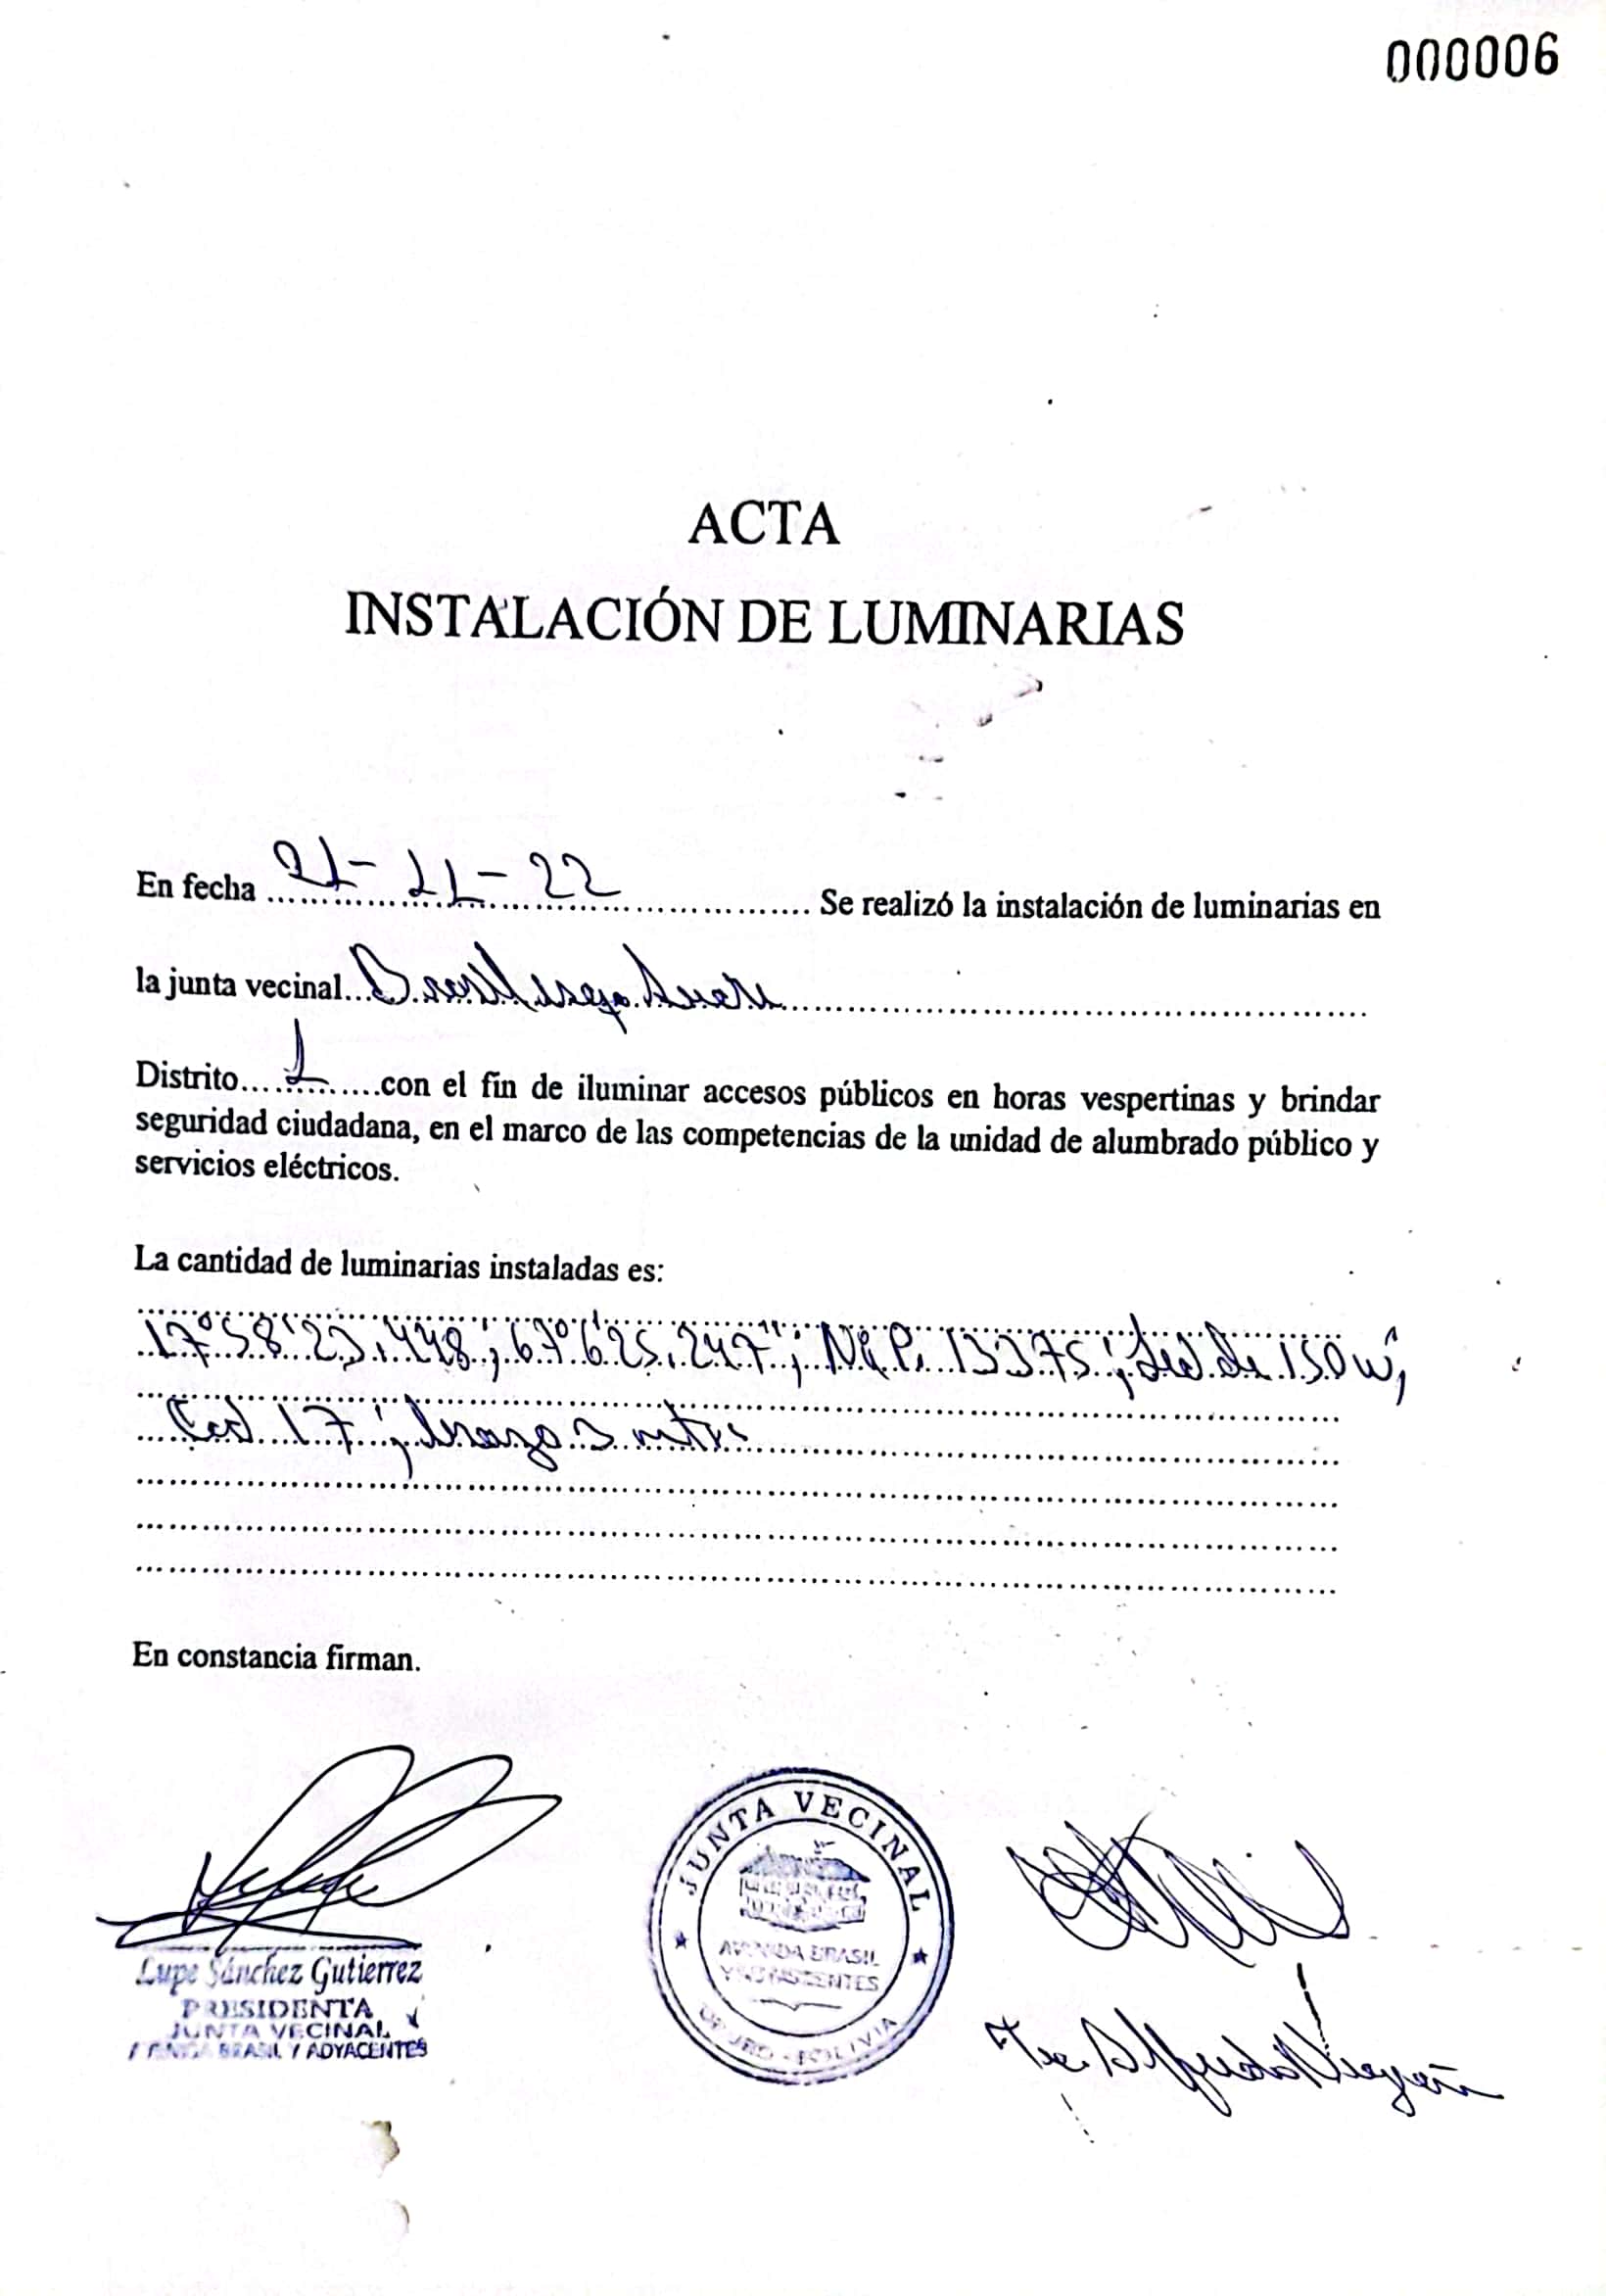 000006
ACTA
INSTALACIÓN DE LUMINARIAS
En fecha 21-11-22 Se realizó la instalación de luminarias en
la junta vecinal
Distrito 1 con el fin de iluminar accesos públicos en horas vespertinas y brindar
seguridad ciudadana, en el marco de las competencias de la unidad de alumbrado público y
servicios eléctricos.
La cantidad de luminarias instaladas es:
17°58'23,448; 67°6'25,247"; N&P. 13375; Led de 150w;
Cod 17; brazo 3 mtrs
En constancia firman.
Lupe Sánchez Gutierrez
PRESIDENTA
JUNTA VECINAL
BRASIL Y ADYACENTES
JUNTA VECINAL
AVENIDA BRASIL
Y ADYACENTES
ORURO - BOLIVIA
Alfredo